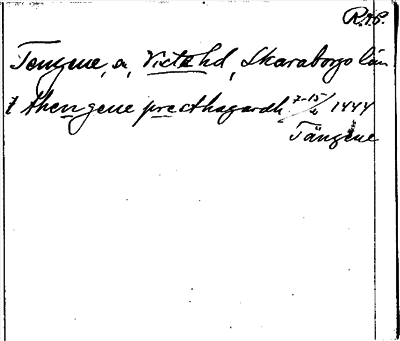 R.A.P.
Tengene, a, Viste hd, Skaraborgs län
t thengene præsthagardh 7-15/4 1444
Tängene